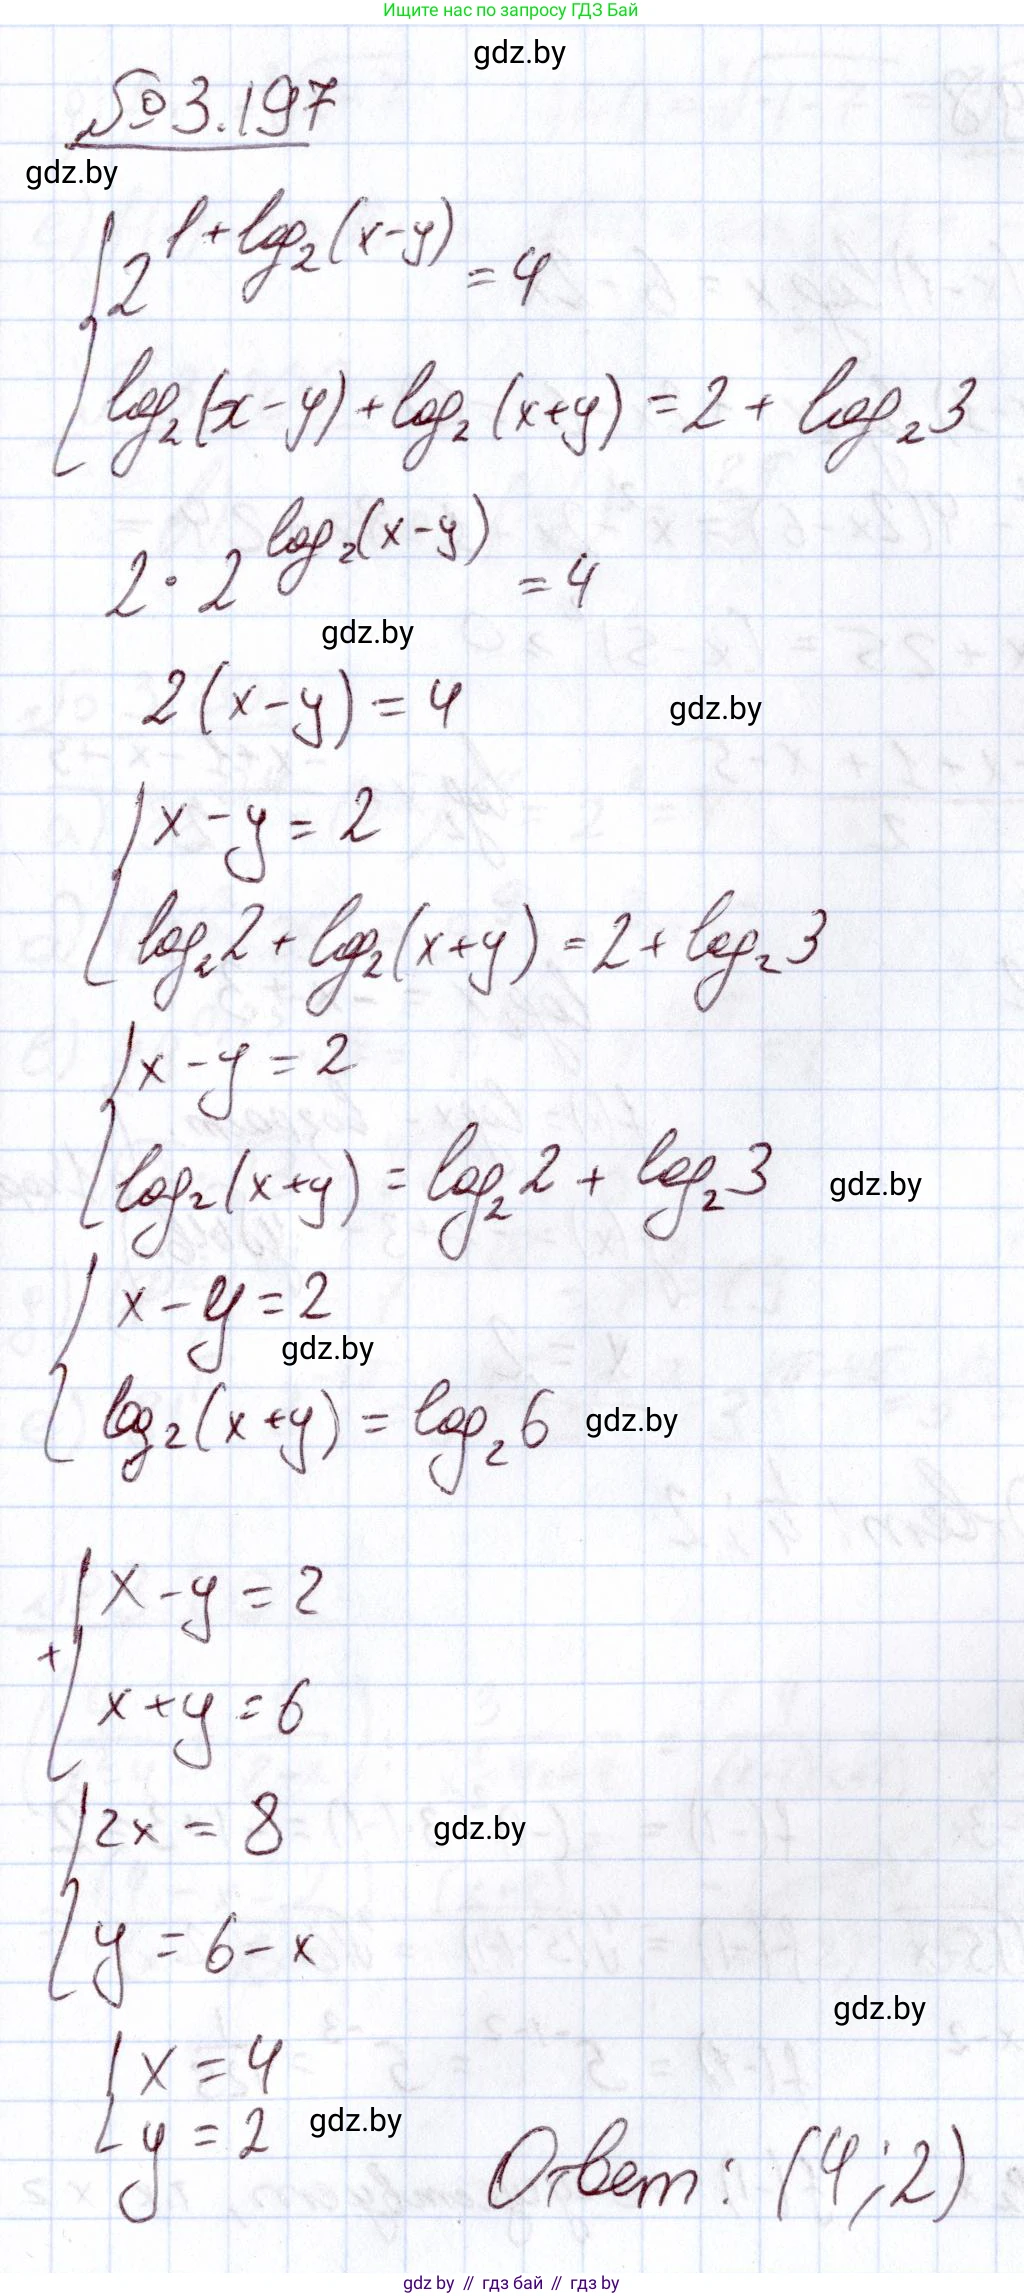 Ищите нас по запросу ГДЗ Бай
gdz.by
№3.197
gdz.by
2^{1+log₂(x-y)} = 4
log₂(x-y) + log₂(x+y) = 2 + log₂3
2 · 2^{log₂(x-y)} = 4
gdz.by
2(x-y) = 4
gdz.by
x-y = 2
log₂2 + log₂(x+y) = 2 + log₂3
x-y = 2
log₂(x+y) = log₂2 + log₂3
gdz.by
x-y = 2
gdz.by
log₂(x+y) = log₂6
gdz.by
x-y = 2
+
x+y = 6
2x = 8
gdz.by
y = 6-x
gdz.by
x = 4
y = 2
gdz.by
Ответ: (4;2)
gdz by // гдз бай // gdz by